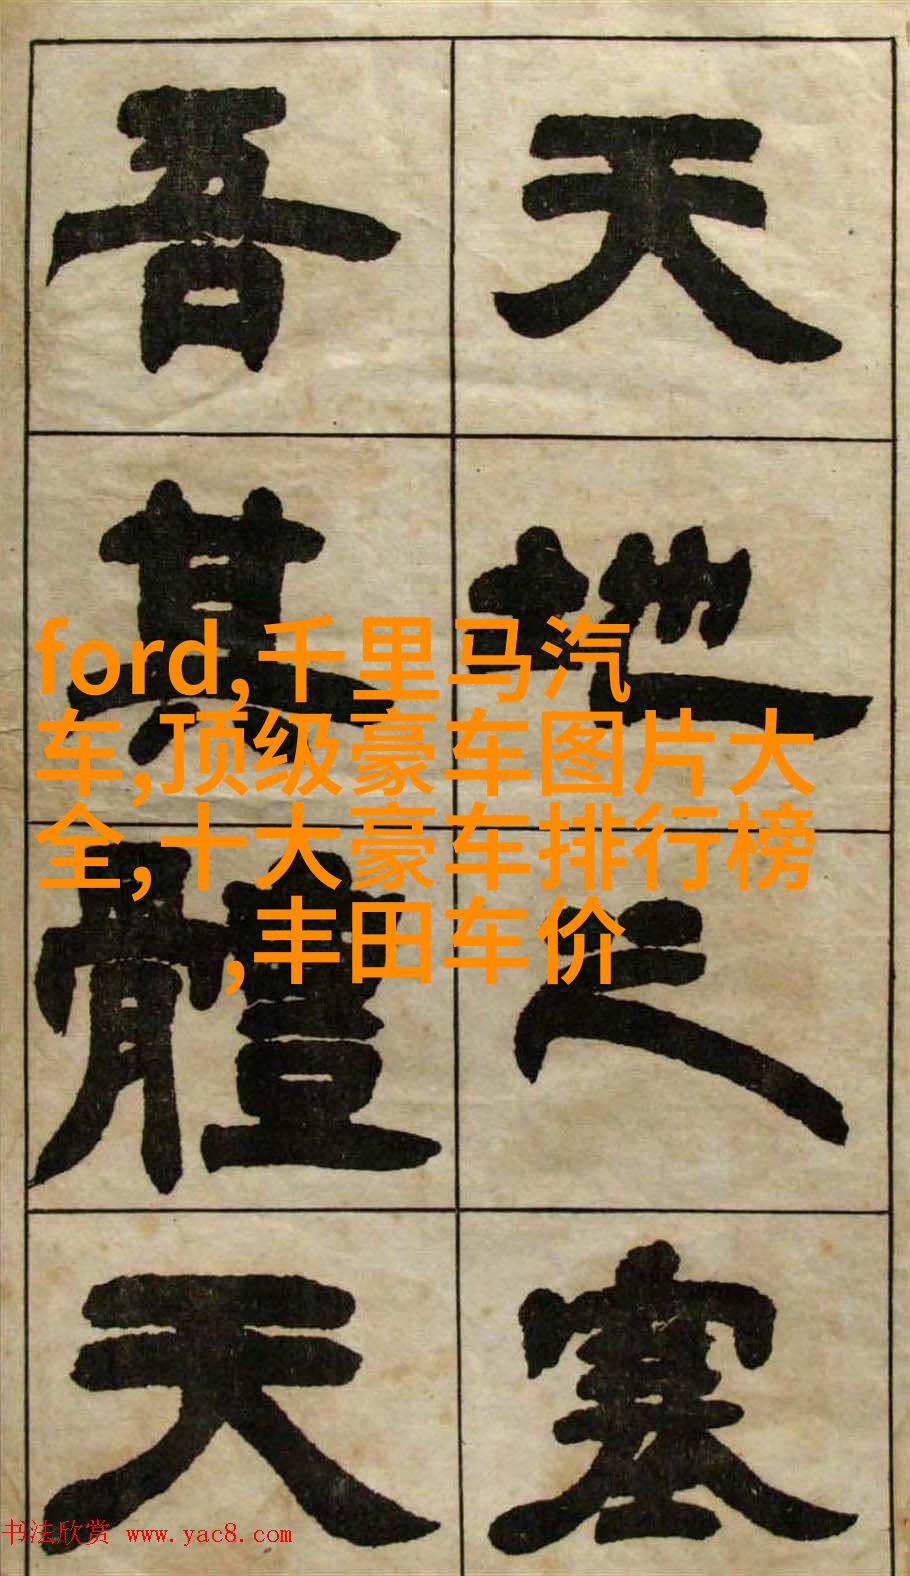 天地之塞
吾其體天
ford,千里马汽
车,顶级豪车图片大
全,十大豪车排行榜
,丰田车价
书法欣赏 www.yac8.com